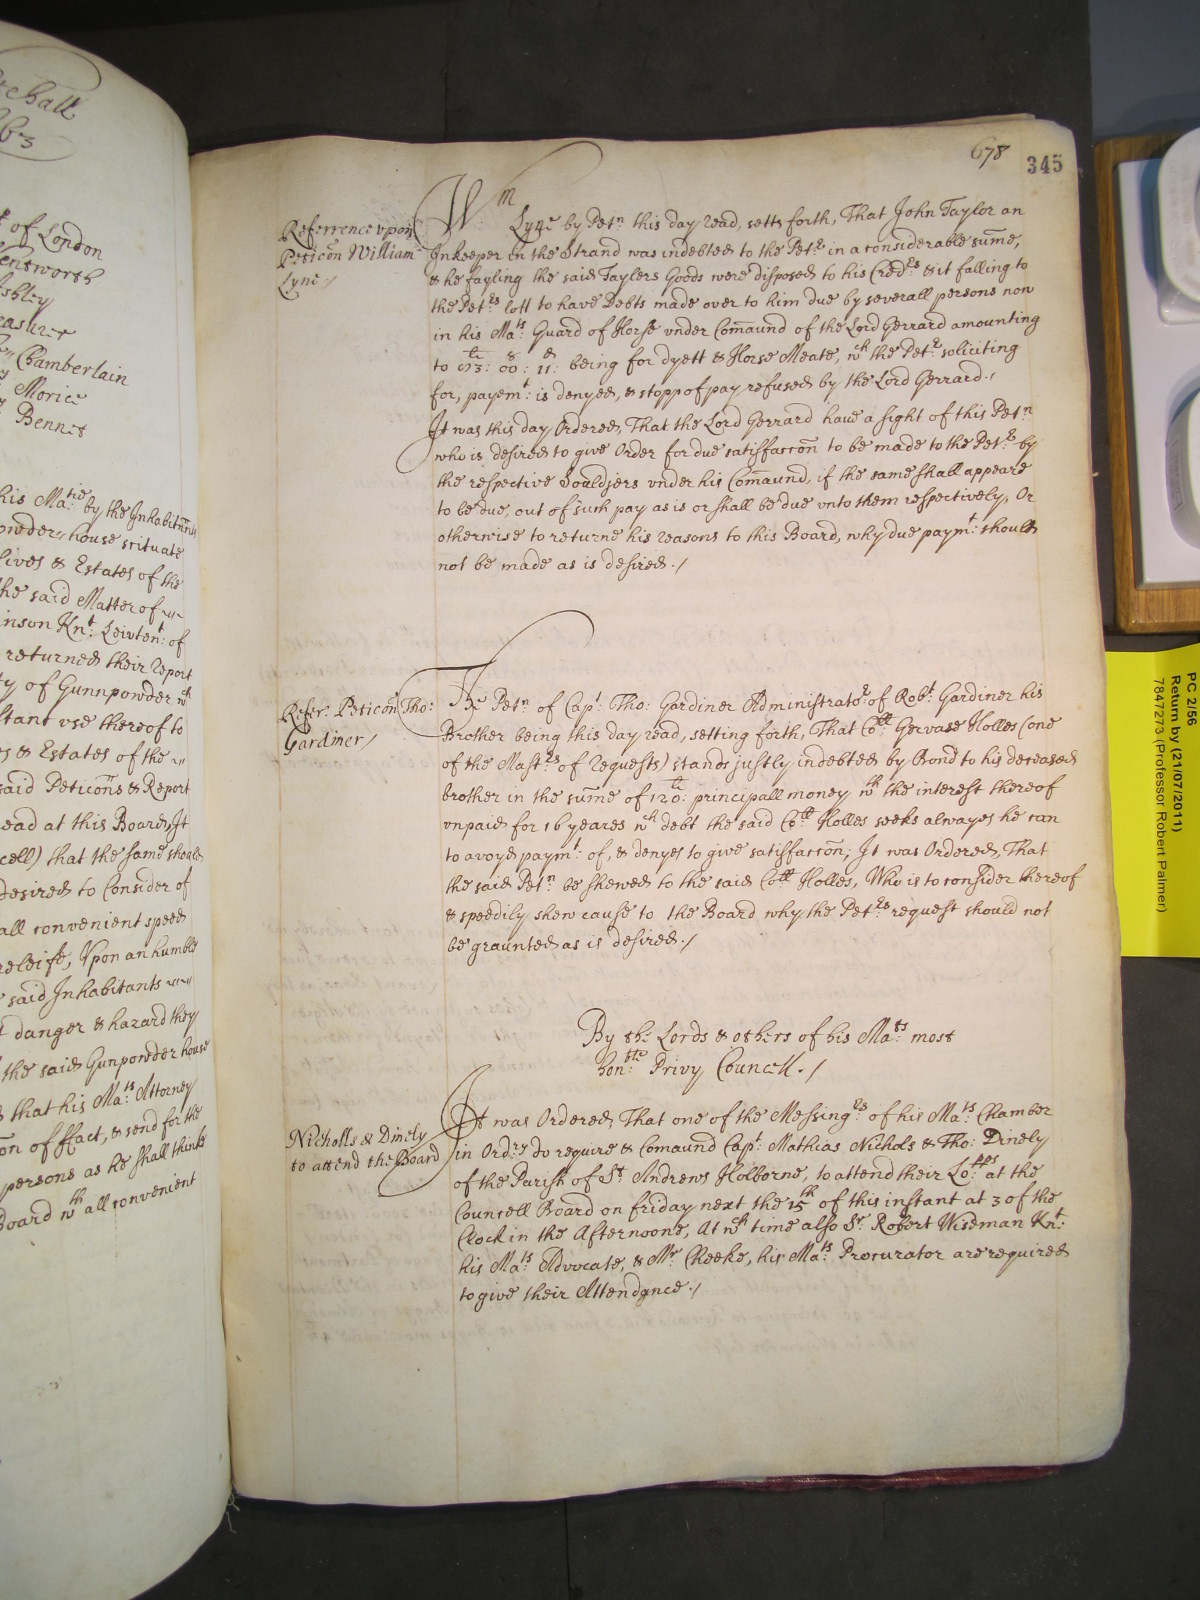 678
345
Referrence vpon
Peticōn William
Lyne /
Wm Lyne by Petn: this day read, setts forth, That John Taylor an
Inkeeper in the Strand was indebted to the Petr: in a considerable sum̄e,
& he fayling the said Taylers Goods were disposed to his Credrs: & it falling to
the Petrs: lott to have Debts made over to him due by severall persons now
in his Mats: Guard of Horse vnder Com̄aund of the Lord Gerrard amounting
to being for dyett & Horse Meate, wch the Petr: soliciting
for, paymt: is denyed, & stopp of pay refused by the Lord Gerrard./
It was this day Ordered, That the Lord Gerrard have a sight of this Petn
who is desired to give Order for due satisfaccōn to be made to the Petr: by
the respective Souldjers vnder his Com̄aund, if the same shall appeare
to be due, out of such pay as is or shall be due vnto them respectively, Or
otherwise to returne his reasons to this Board, why due paymt: should
not be made as is desired ./
Refer: Peticōn Tho:
Gardiner /
The Petn: of Capt: Tho: Gardiner Administrator: of Robt: Gardiner his
Brother being this day read, setting forth, That Coll: Gervase Holles (one
of the Mastrs: of Requests) stands justly indebted by Bond to his deceased
brother in the sum̄e of 120li: principall money wth the interest thereof
vnpaid for 16 yeares wch debt the said Coll: Holles seeks alwayes he can
to avoyd paymt: of, & denyes to give satisfaccōn; It was Ordered, That
the said Petn: be shewed to the said Coll: Holles, Who is to consider thereof
& speedily shew cause to the Board why the Petrs: request should not
be graunted as is desired ./
By the Lords & others of his Mats: most
honble: Privy Councell ./
Nicholls & Dinely
to attend the Board
It was Ordered, That one of the Messingrs: of his Mats: Chamber
in Ordry do require & Com̄aund Capt: Mathias Nichols & Tho: Dinely
of the Parish of St: Andrews Holborne, to attend their Lopps: at the
Councell Board on friday next the 15th of this instant at 3 of the
Clock in the Afternoone, At wch time also Sr: Robert Wiseman Knt:
his Mats: Advocate, & Mr: Cheeke, his Mats: Procurator are required
to give their Attendance ./
of London
Chamberlain
Morice
Bennet
his Matie: by the Inhabitants
house scituate
lives & Estates of the
the said Matter of
Knt: Leivtent: of
returned their report
of Gunnpowder wch
vse thereof to
& Estates of the
said Peticōns & Report
read at this Board, It
that the same should
desired to Consider of
all convenient speed
releife, Vpon an humble
said Inhabitants
danger & hazard they
the said Gunpowder house
that his Mats: Attorney
of ffact, & send for the
persons as he shall thinke
Board wth all convenient
PC 2/56
Return by (21/07/2011)
7847273 (Professor Robert Palmer)